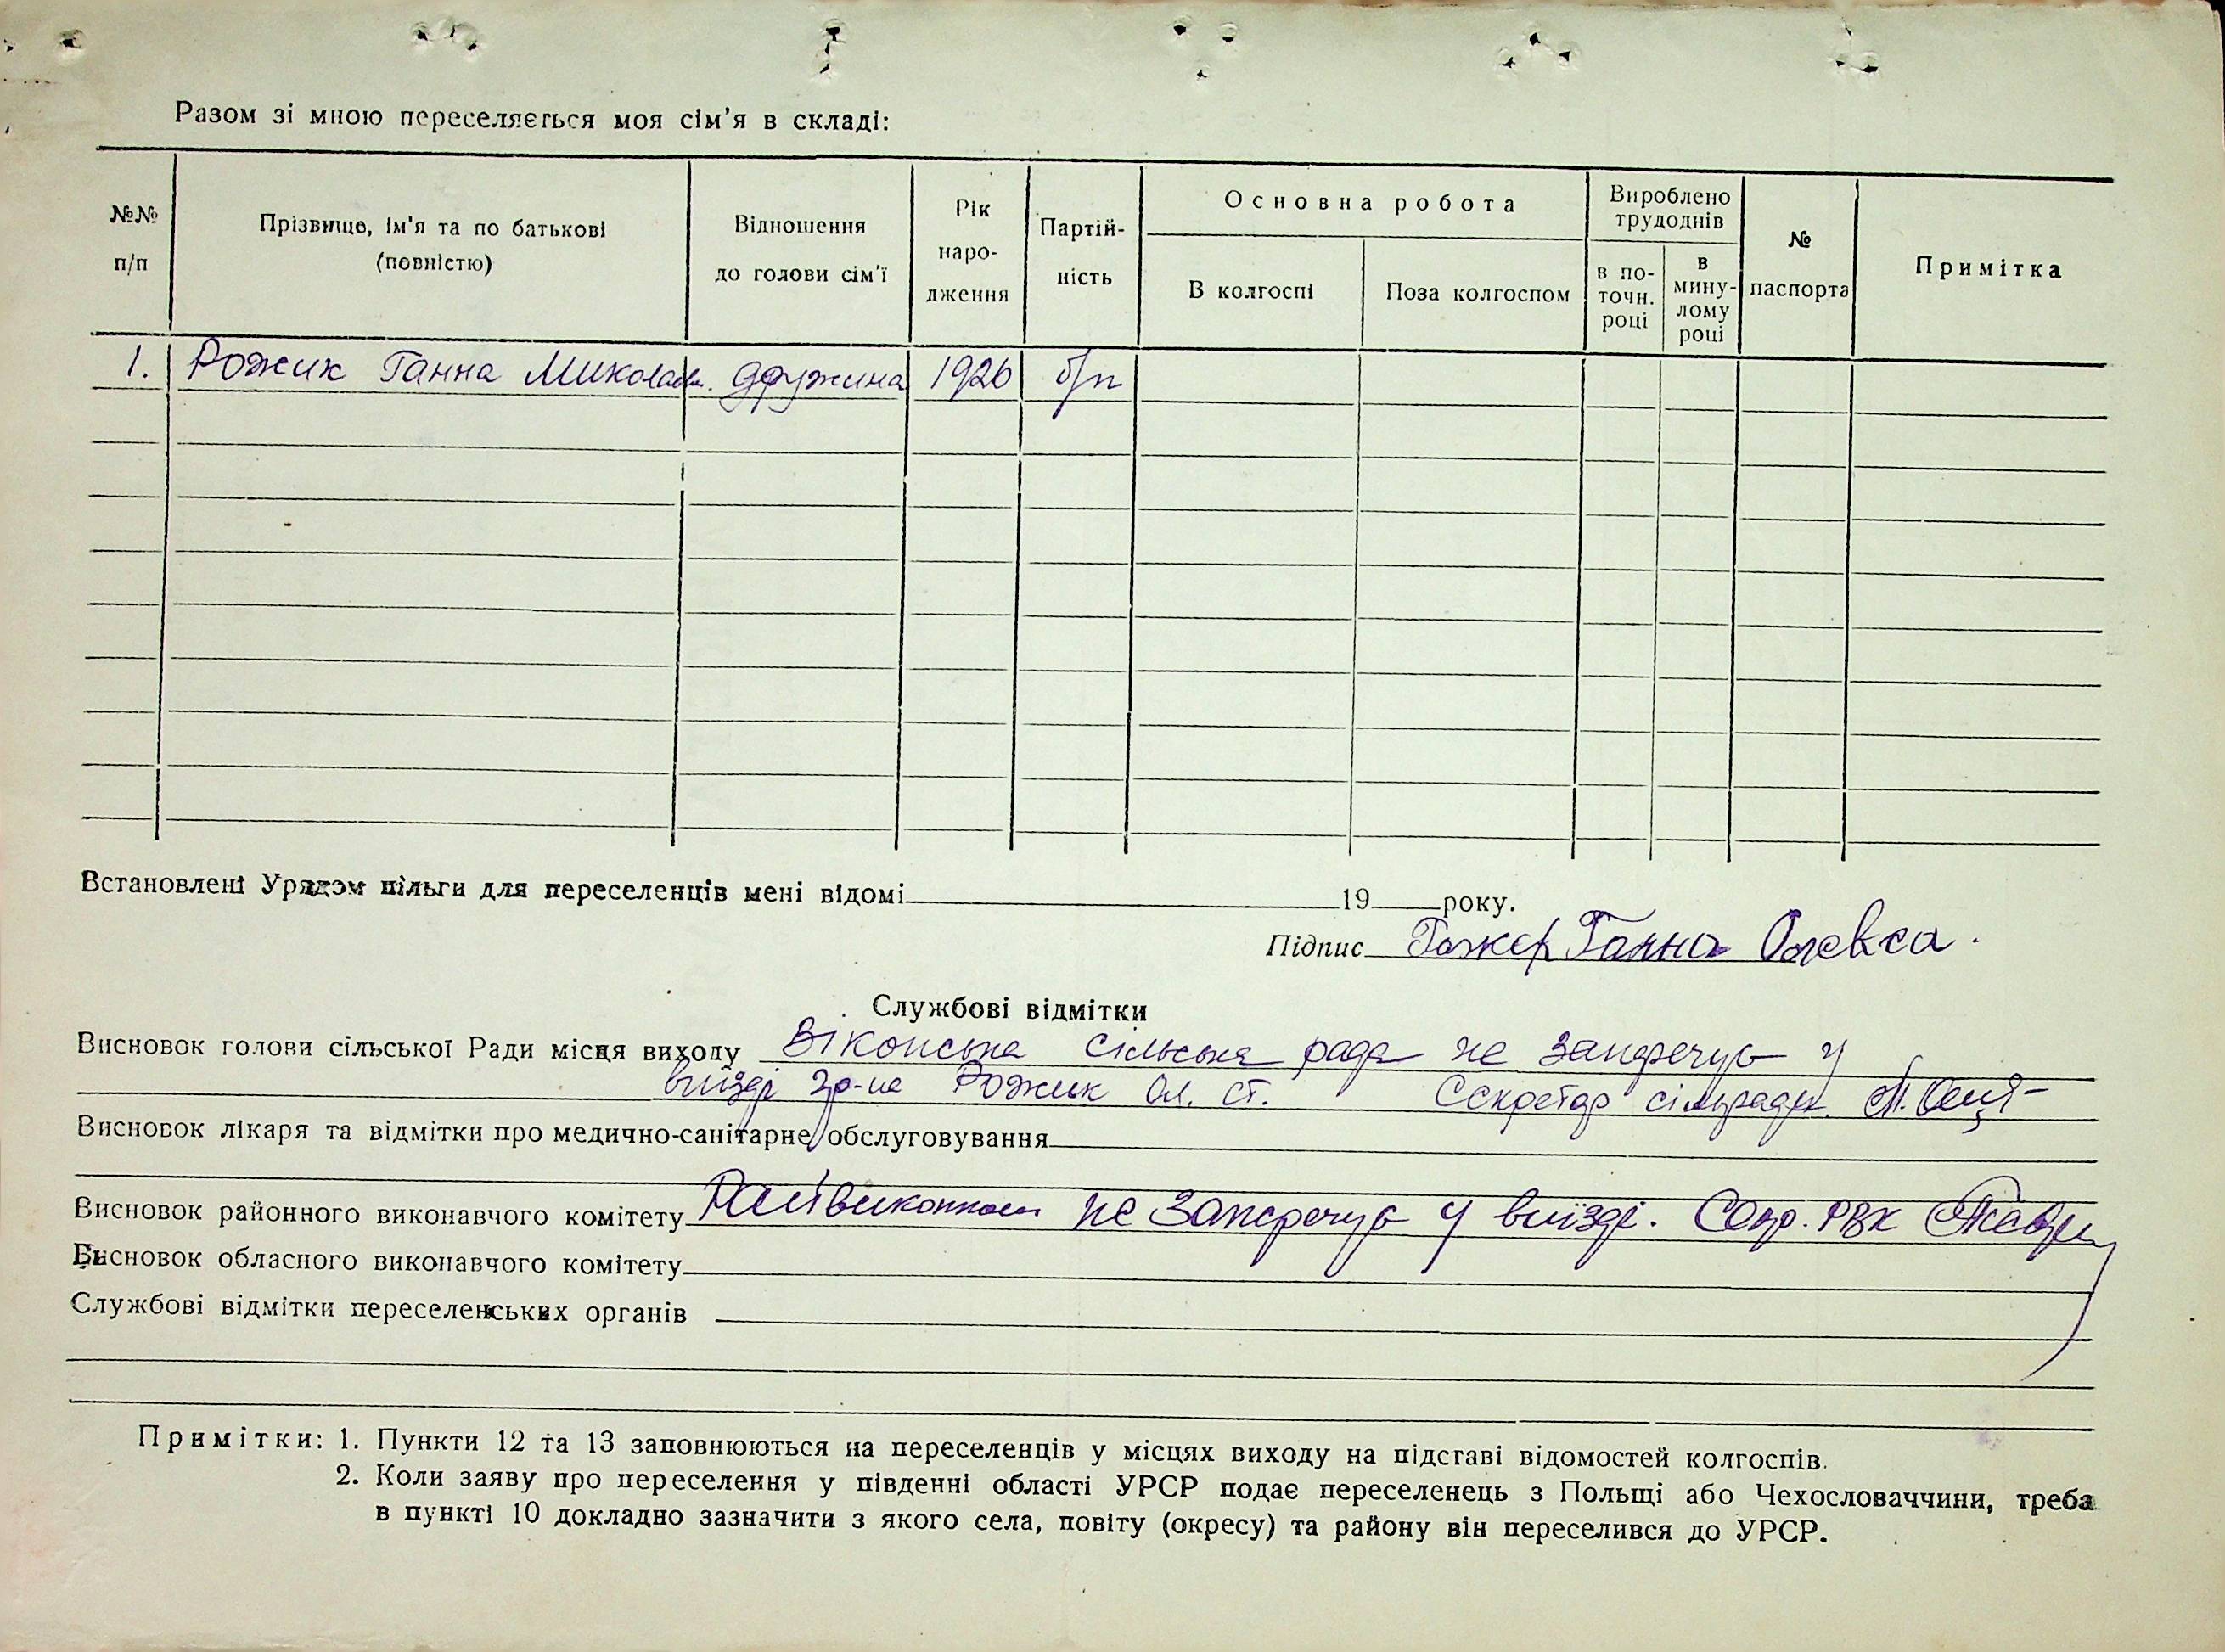 Разом зі мною переселяється моя сім'я в складі:
№№ п/п
Прізвище, ім'я та по батькові (повністю)
Відношення до голови сім'ї
Рік наро-дження
Партій-ність
Основна робота
В колгоспі
Поза колгоспом
Вироблено трудоднів
в по-точн. році
в мину-лому році
№ паспорта
Примітка
1. Рожик Ганна Миколаєв. дружина 1926 б/п
Встановлені Урядом пільги для переселенців мені відомі 19 року.
Підпис Ганна Олекса.
Службові відмітки
Висновок голови сільської Ради місця виходу Віконська сільська рада не заперечує у
виїзді гр-на Рожик Ол. Ст. Секретар сільради
Висновок лікаря та відмітки про медично-санітарне обслуговування
Висновок районного виконавчого комітету Райвиконком не заперечує у виїзді. РВК
Висновок обласного виконавчого комітету
Службові відмітки переселенських органів
Примітки: 1. Пункти 12 та 13 заповнюються на переселенців у місцях виходу на підставі відомостей колгоспів.
2. Коли заяву про переселення у південні області УРСР подає переселенець з Польщі або Чехословаччини, треба
в пункті 10 докладно зазначити з якого села, повіту (окресу) та району він переселився до УРСР.